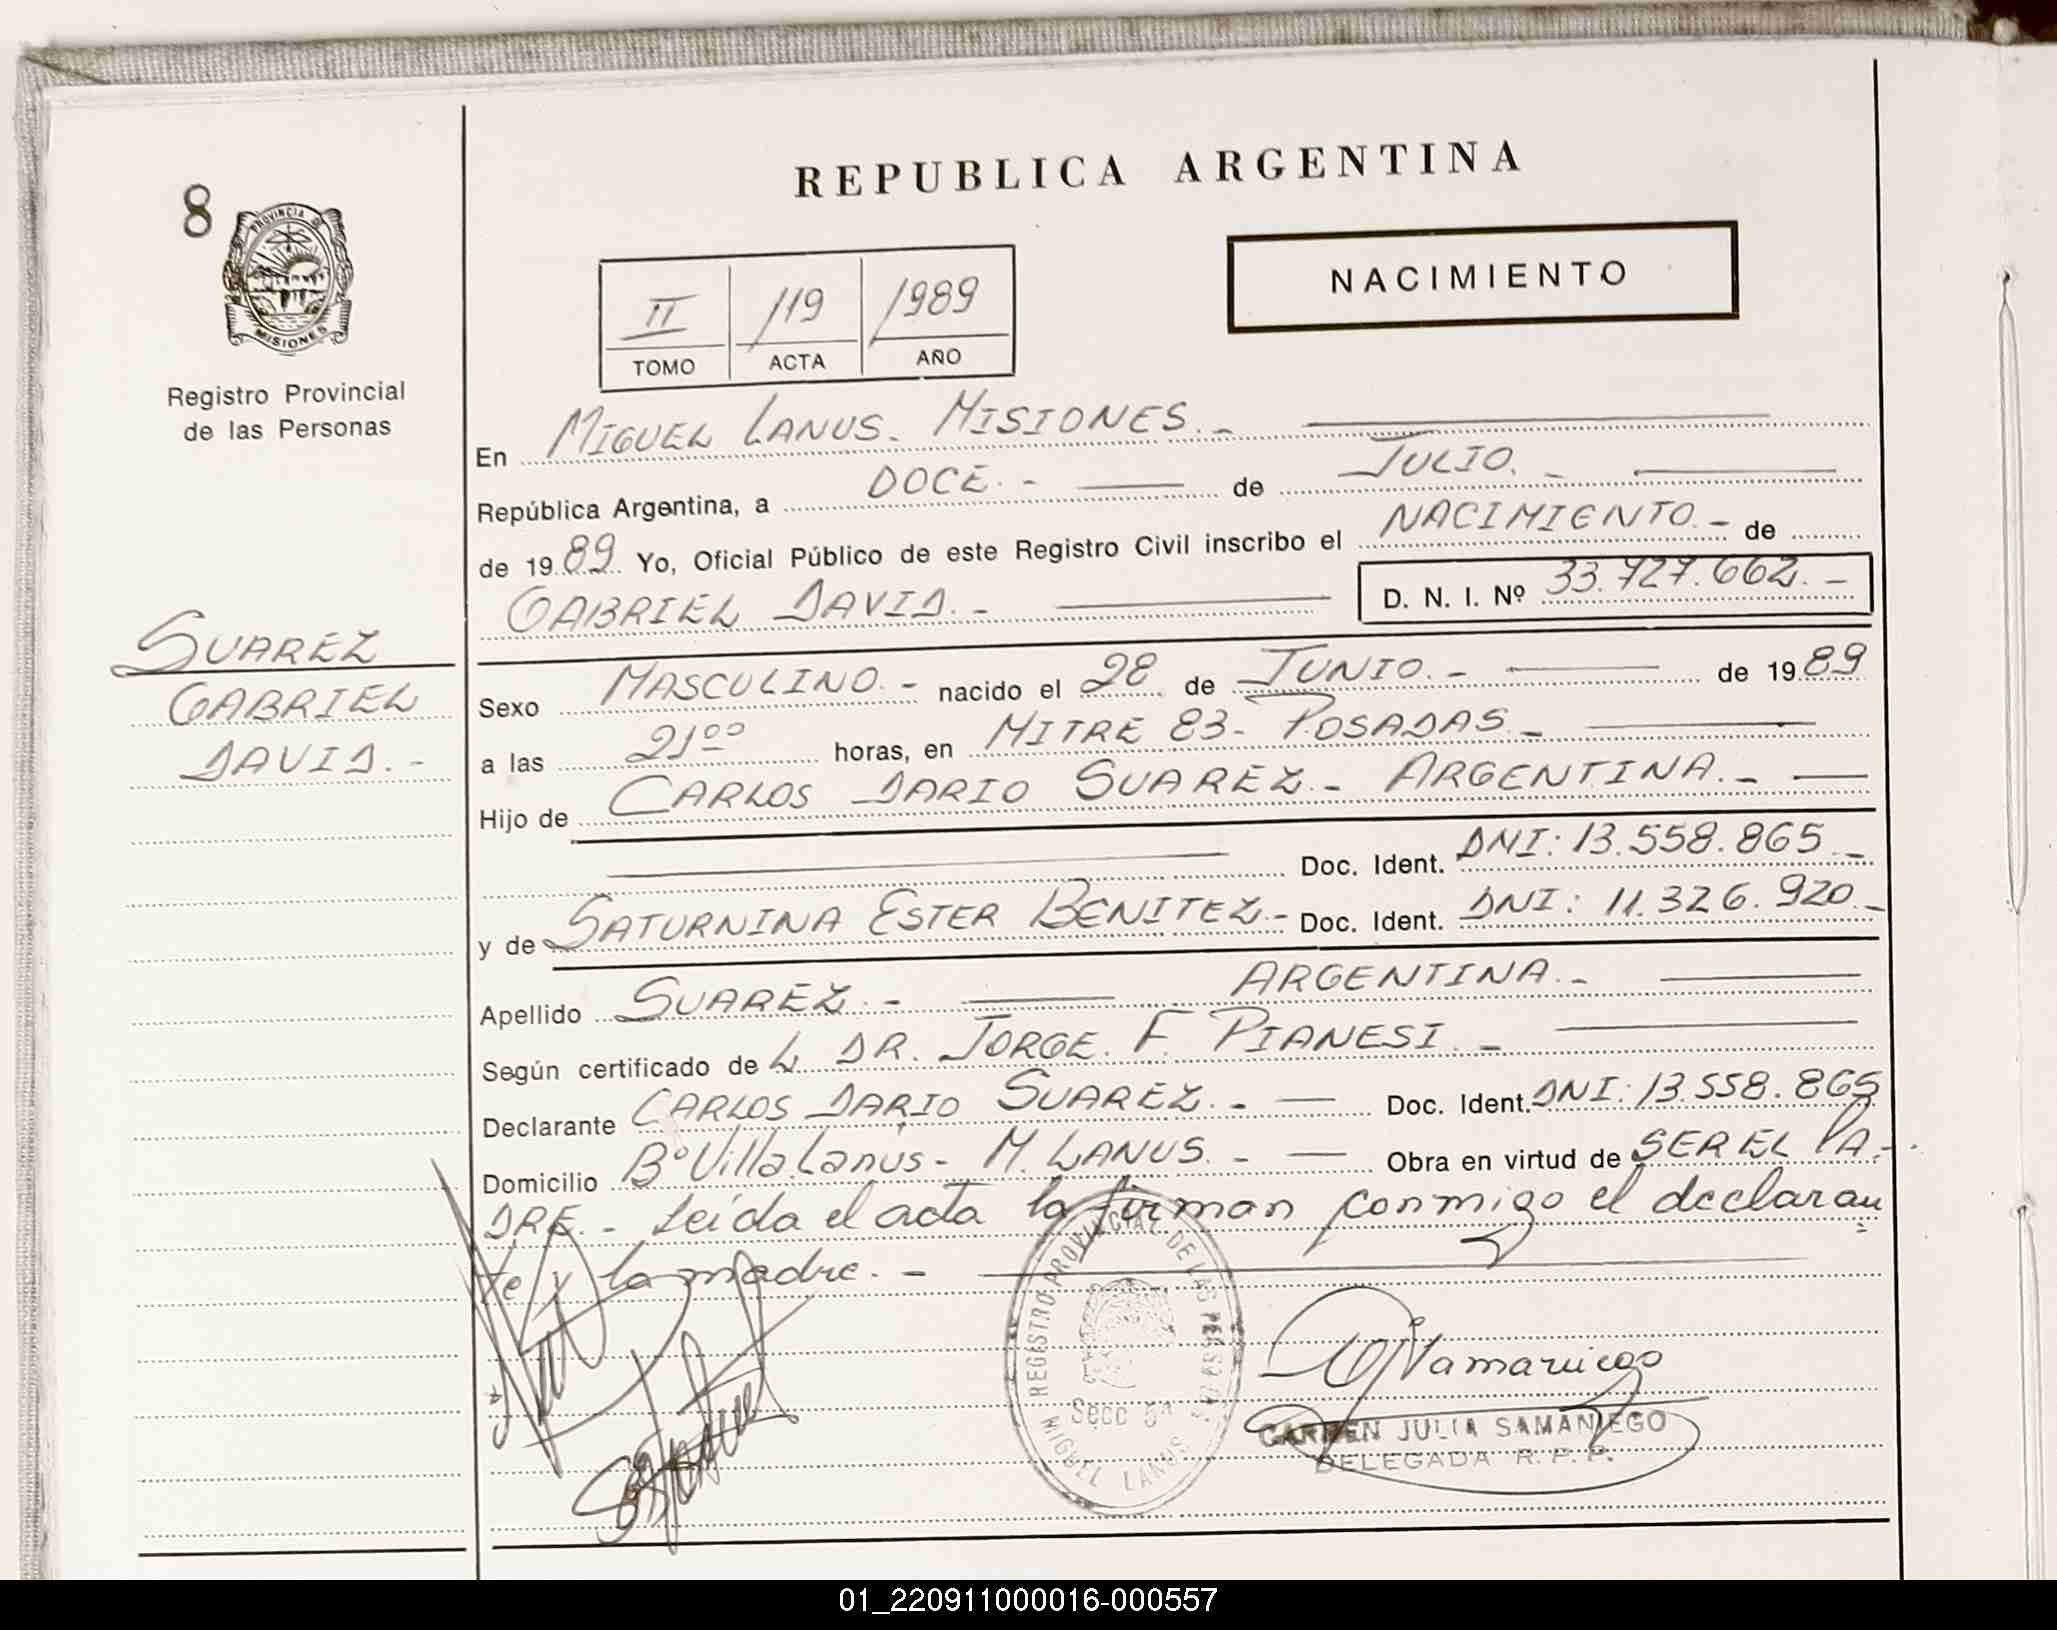 REPUBLICA ARGENTINA
8
PROVINCIA DE
MISIONES
Registro Provincial
de las Personas
II 119 1989
TOMO ACTA AÑO
NACIMIENTO
En MIGUEL LANUS. MISIONES.-
República Argentina, a DOCE.- de JULIO.-
de 1989 Yo, Oficial Público de este Registro Civil inscribo el NACIMIENTO.- de
GABRIEL DAVID.- D. N. I. Nº 33.727.662.-
SUAREZ
GABRIEL
DAVID.-
Sexo MASCULINO.- nacido el 28 de JUNIO.- de 1989
a las 21ºº horas, en MITRE 83- POSADAS.-
Hijo de CARLOS DARIO SUAREZ.- ARGENTINA.-
Doc. Ident. DNI: 13.558.865.-
y de SATURNINA ESTER BENITEZ.- Doc. Ident. DNI: 11.326.920.-
Apellido SUAREZ.- ARGENTINA.-
Según certificado de L DR. JORGE. F. PIANESI.-
Declarante CARLOS DARIO SUAREZ.- Doc. Ident. DNI: 13.558.865
Domicilio Bº Villa Lanús- M. LANUS.- Obra en virtud de SER EL PA-
DRE.- Leída el acta la firman conmigo el declaran
te y la madre.-
REGISTRO PROVINCIAL DE LAS PERSONAS
Secc 5ª
MIGUEL LANUS
CARMEN JULIA SAMANIEGO
DELEGADA R. P. P.
01_220911000016-000557